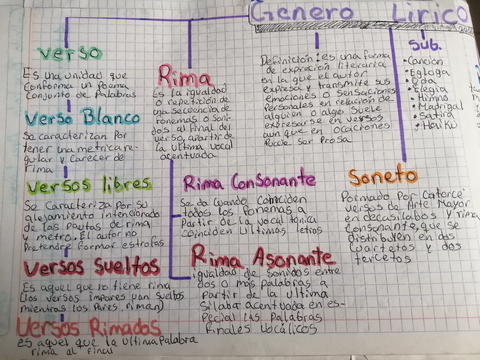 Género Lírico
verso
Es una unidad que
conforma un poama
Conjunto de Palabras
Verso Blanco
Se caracterizan Por
tener una metrica re-
gular y carecer de
rima
Versos libres
Se Caracteriza Por su
alejamiento intencionado
de las pautas de rima
y metro. El autor no
Pretende formar estrofas
Versos Sueltos
Es aquel que no tiene rima
(los versos impares van sueltos
mientras los Pares, riman)
Versos Rimados
es aquel que la Ultima Palabra
rima al final
Rima
Es la igualdad
o repetición de
una secuencia de
fonemas o soni-
dos al final del
verso, apartir de
la ultima vocal
acentuada
Rima Consonante
Se da cuando coinciden
todos los fonemas a
Partir de la vocal tónica
coinciden Ultimas letras
Rima Asonante
igualdad de Sonidos entre
dos o más Palabras a
partir de la ultima
Silaba acentuada en es-
pecial las Palabras
finales Vocálicos
Definición: es una forma
de expreción literaria
en la que el autor
expresa y transmite sus
emociones o Sensaciones
Personales en relación de
alguien o algo Suele
expresarse en versos
aun que en ocaciones
Puede Ser Prosa
Sub.
• Canción
• Egloga
• Oda
• Elegia
• Himno
• Madrigal
• Satira
• Haiku
Soneto
Formado Por Catorce
versos de Arte Mayor
endecasilabos y rima
Consonante, que se
distribuyen en dos
Cuartetos y dos
tercetos